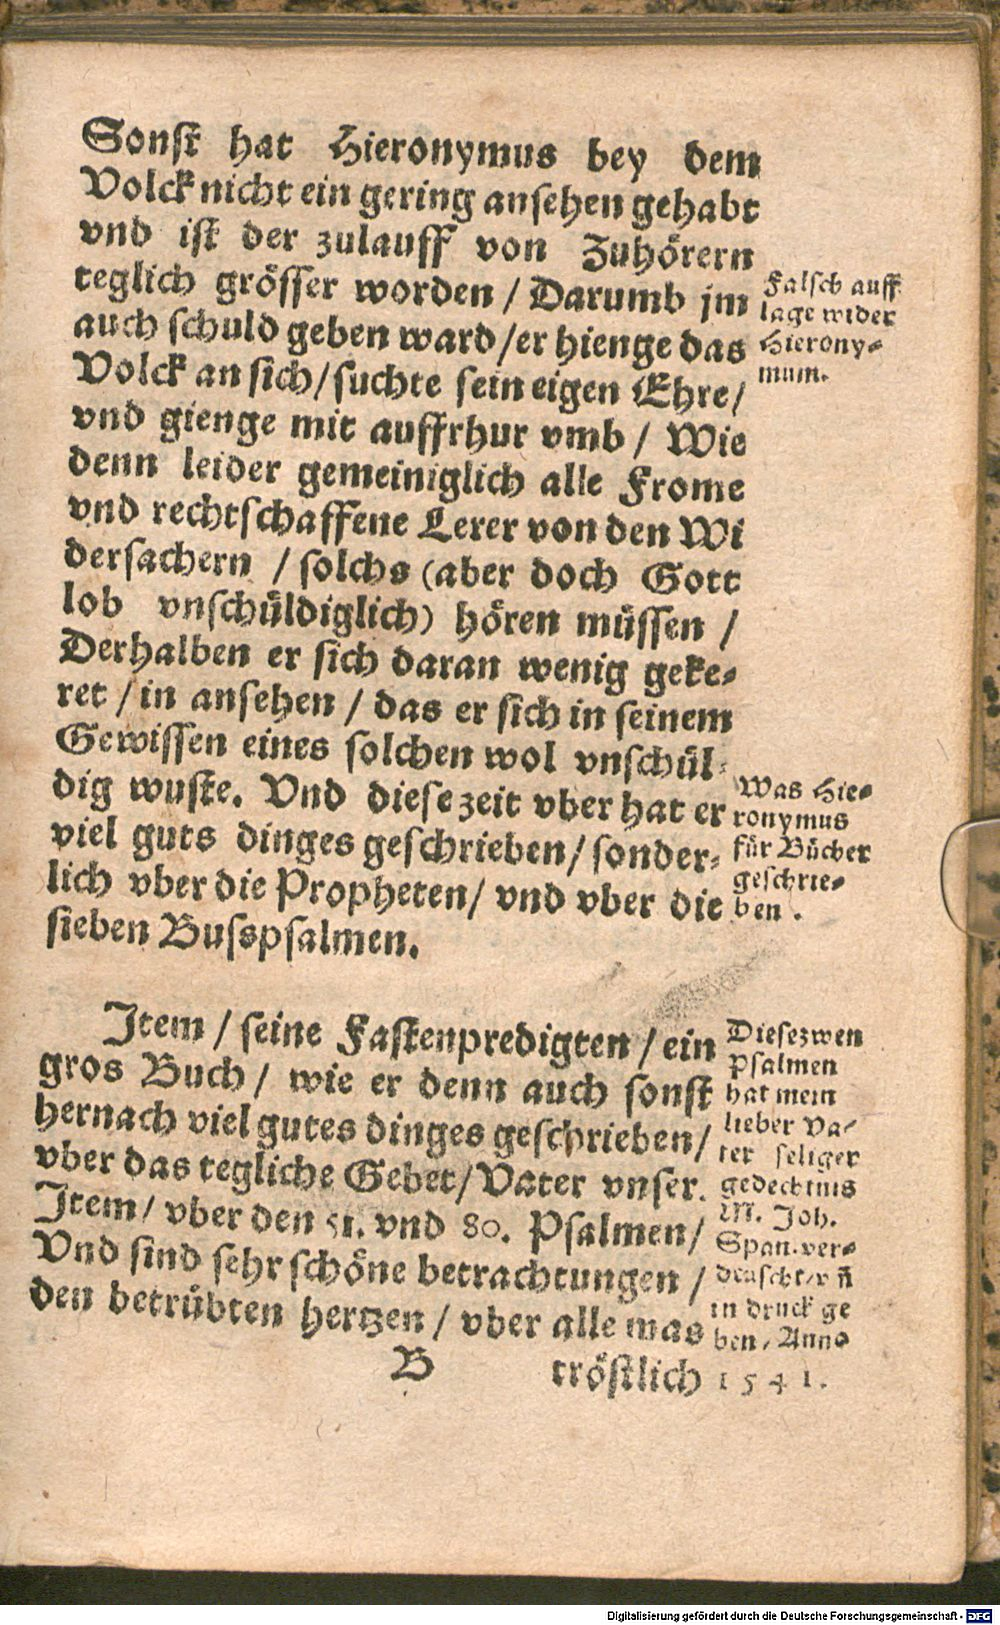 Sonſt hat Hieronymus bey dem
Volck nicht ein gering anſehen gehabt
vnd iſt der zulauff von Zuhörern
teglich gröſſer worden / Darumb jm
auch ſchuld geben ward / er hienge das
Volck an ſich / ſuchte ſein eigen Ehre /
vnd gienge mit auffrhur vmb / Wie
denn leider gemeiniglich alle Frome
vnd rechtſchaffene Lerer von den Wi
derſachern / ſolchs (aber doch Gott
lob vnſchüldiglich) hören müſſen /
Derhalben er ſich daran wenig geke⸗
ret / in anſehen / das er ſich in ſeinem
Gewiſſen eines ſolchen wol vnſchül⸗
dig wuſte. Vnd dieſe zeit vber hat er
viel guts dinges geſchrieben / ſonder⸗
lich vber die Propheten / vnd vber die
ſieben Buſspſalmen.
Falſch auff
lage wider
Hierony⸗
mum.
Was Hie⸗
ronymus
für Bücher
geſchrie⸗
ben.
Jtem / ſeine Faſtenpredigten / ein
gros Buch / wie er denn auch ſonſt
hernach viel gutes dinges geſchrieben /
vber das tegliche Gebet / Vater vnſer.
Jtem / vber den 51. vnd 80. Pſalmen /
Vnd ſind ſehr ſchöne betrachtungen /
den betrübten hertzen / vber alle mas
Dieſe zwen
Pſalmen
hat mein
lieber Va⸗
ter ſeliger
gedechtnis
M. Joh.
Span. ver⸗
deuſcht / vñ
in druck ge
ben / Anno
1541.
B tröſtlich
Digitalisierung gefördert durch die Deutsche Forschungsgemeinschaft - DFG